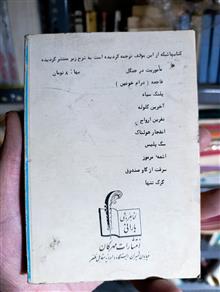 کتابهائیکه از این مولف ترجمه گردیده است به شرح زیر منتشر گردیده
مأموریت در جنگل بها : ۸ تومان
فاجعه ( درام خونین )
پلنگ سیاه
آخرین گلوله
نفرین ارواح
انفجار هولناک
سگ پلیس
اشعه مرموز
سرقت از گاو صندوق
گرگ تنها
بارانی
انتشارات مهرگان